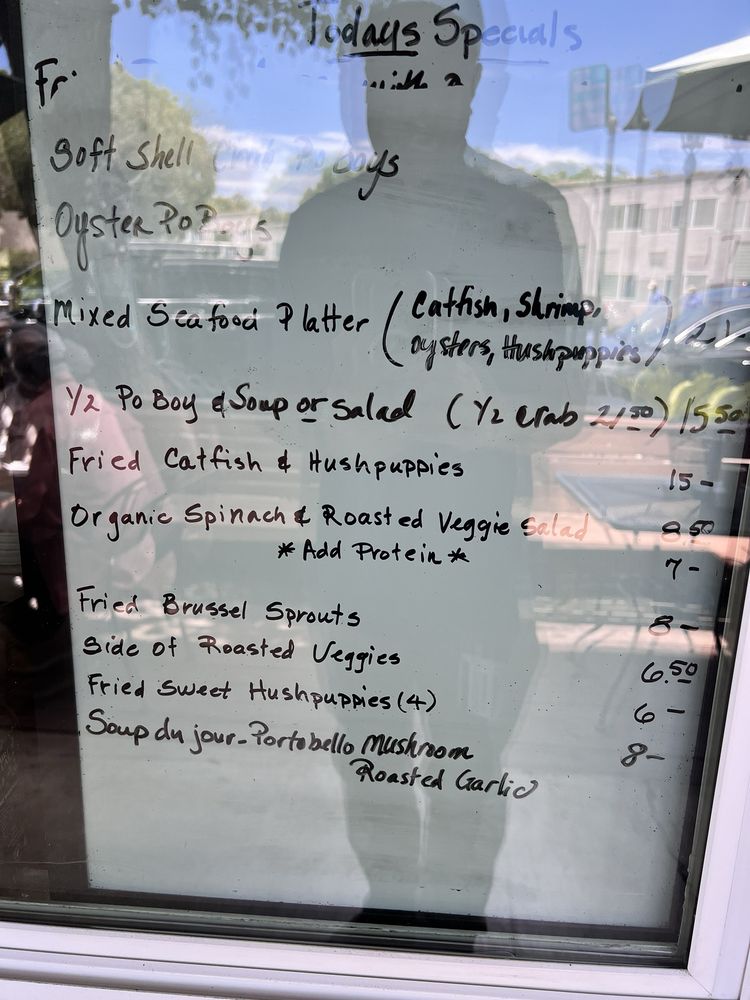 Todays Specials
with a
Soft Shell Crab Po boys
Oyster Po Boys
Mixed Seafood Platter (Catfish, Shrimp,
oysters, Hushpuppies)
1/2 Po Boy & Soup or Salad (1/2 crab 21.50) 15.50
Fried Catfish & Hushpuppies 15-
Organic Spinach & Roasted Veggie Salad 8.50
*Add Protein* 7-
Fried Brussel Sprouts 8-
Side of Roasted Veggies 6.50
Fried Sweet Hushpuppies (4) 6-
Soup du jour - Portobello Mushroom 8-
Roasted Garlic